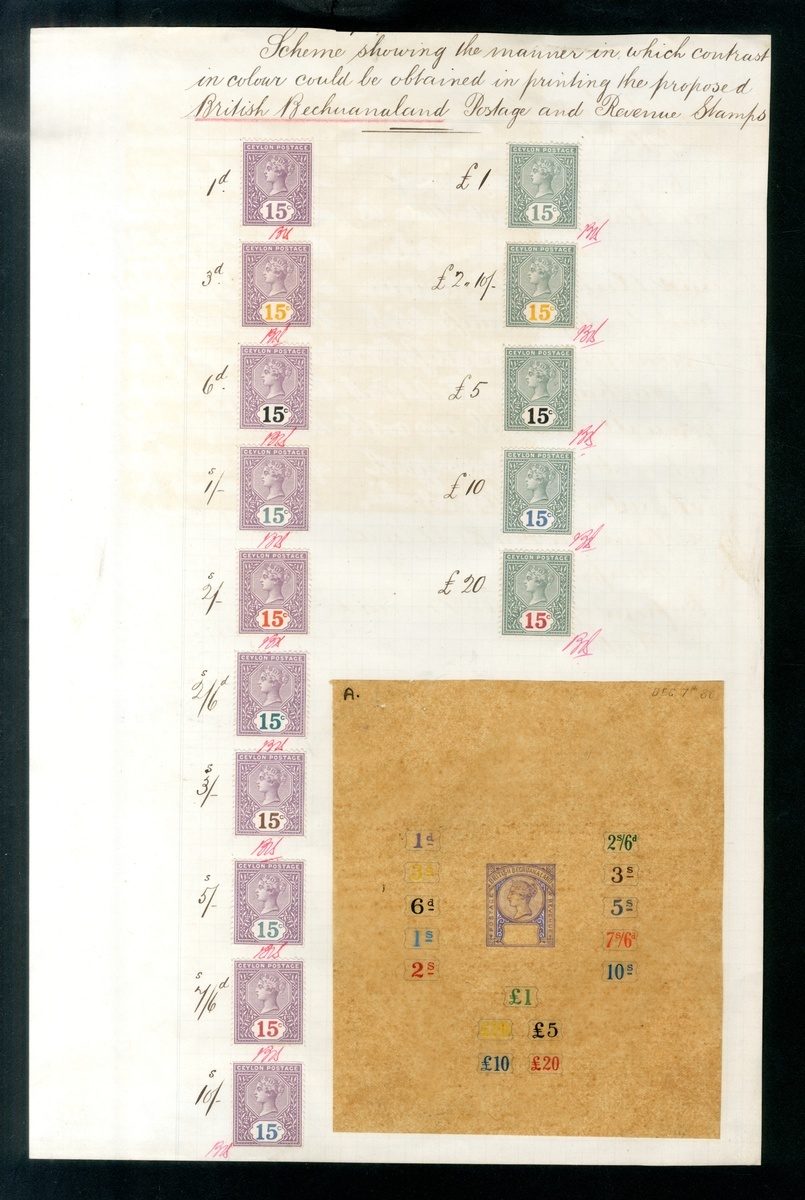 Scheme showing the manner in which contrast
in colour could be obtained in printing the proposed
British Bechuanaland Postage and Revenue Stamps
1d.
CEYLON POSTAGE
15c
£1
CEYLON POSTAGE
15c
3d.
CEYLON POSTAGE
15c
£2.10/-
CEYLON POSTAGE
15c
6d.
CEYLON POSTAGE
15c
£5
CEYLON POSTAGE
15c
s
1/-
CEYLON POSTAGE
15c
£10
CEYLON POSTAGE
15c
s
2/-
CEYLON POSTAGE
15c
£20
CEYLON POSTAGE
15c
s
2/6d
CEYLON POSTAGE
15c
s
3/-
CEYLON POSTAGE
15c
s
5/-
CEYLON POSTAGE
15c
s
7/6d
CEYLON POSTAGE
15c
s
10/-
CEYLON POSTAGE
15c
A.
DEC. 7th 86
1d
2s/6d
3d
3s
6d
5s
1s
7s/6d
2s
10s
BRITISH BECHUANALAND
POSTAGE
REVENUE
£1
£5
£10
£20